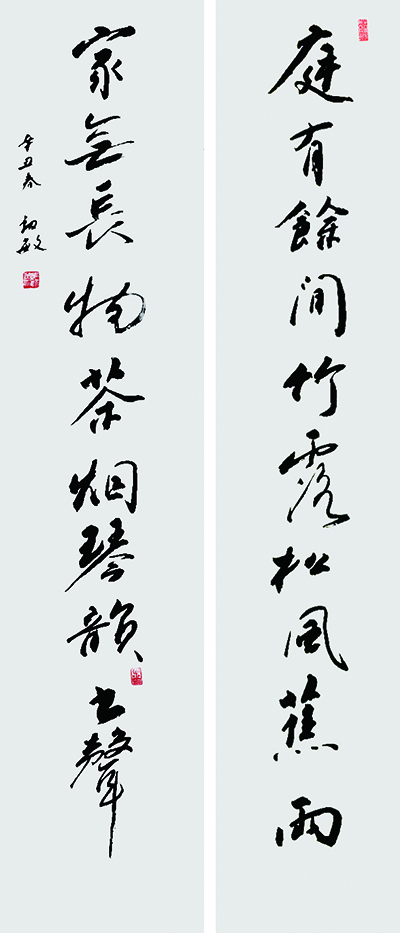 庭有餘閒竹露松風蕉雨
家無長物茶烟琴韻書聲
辛丑春